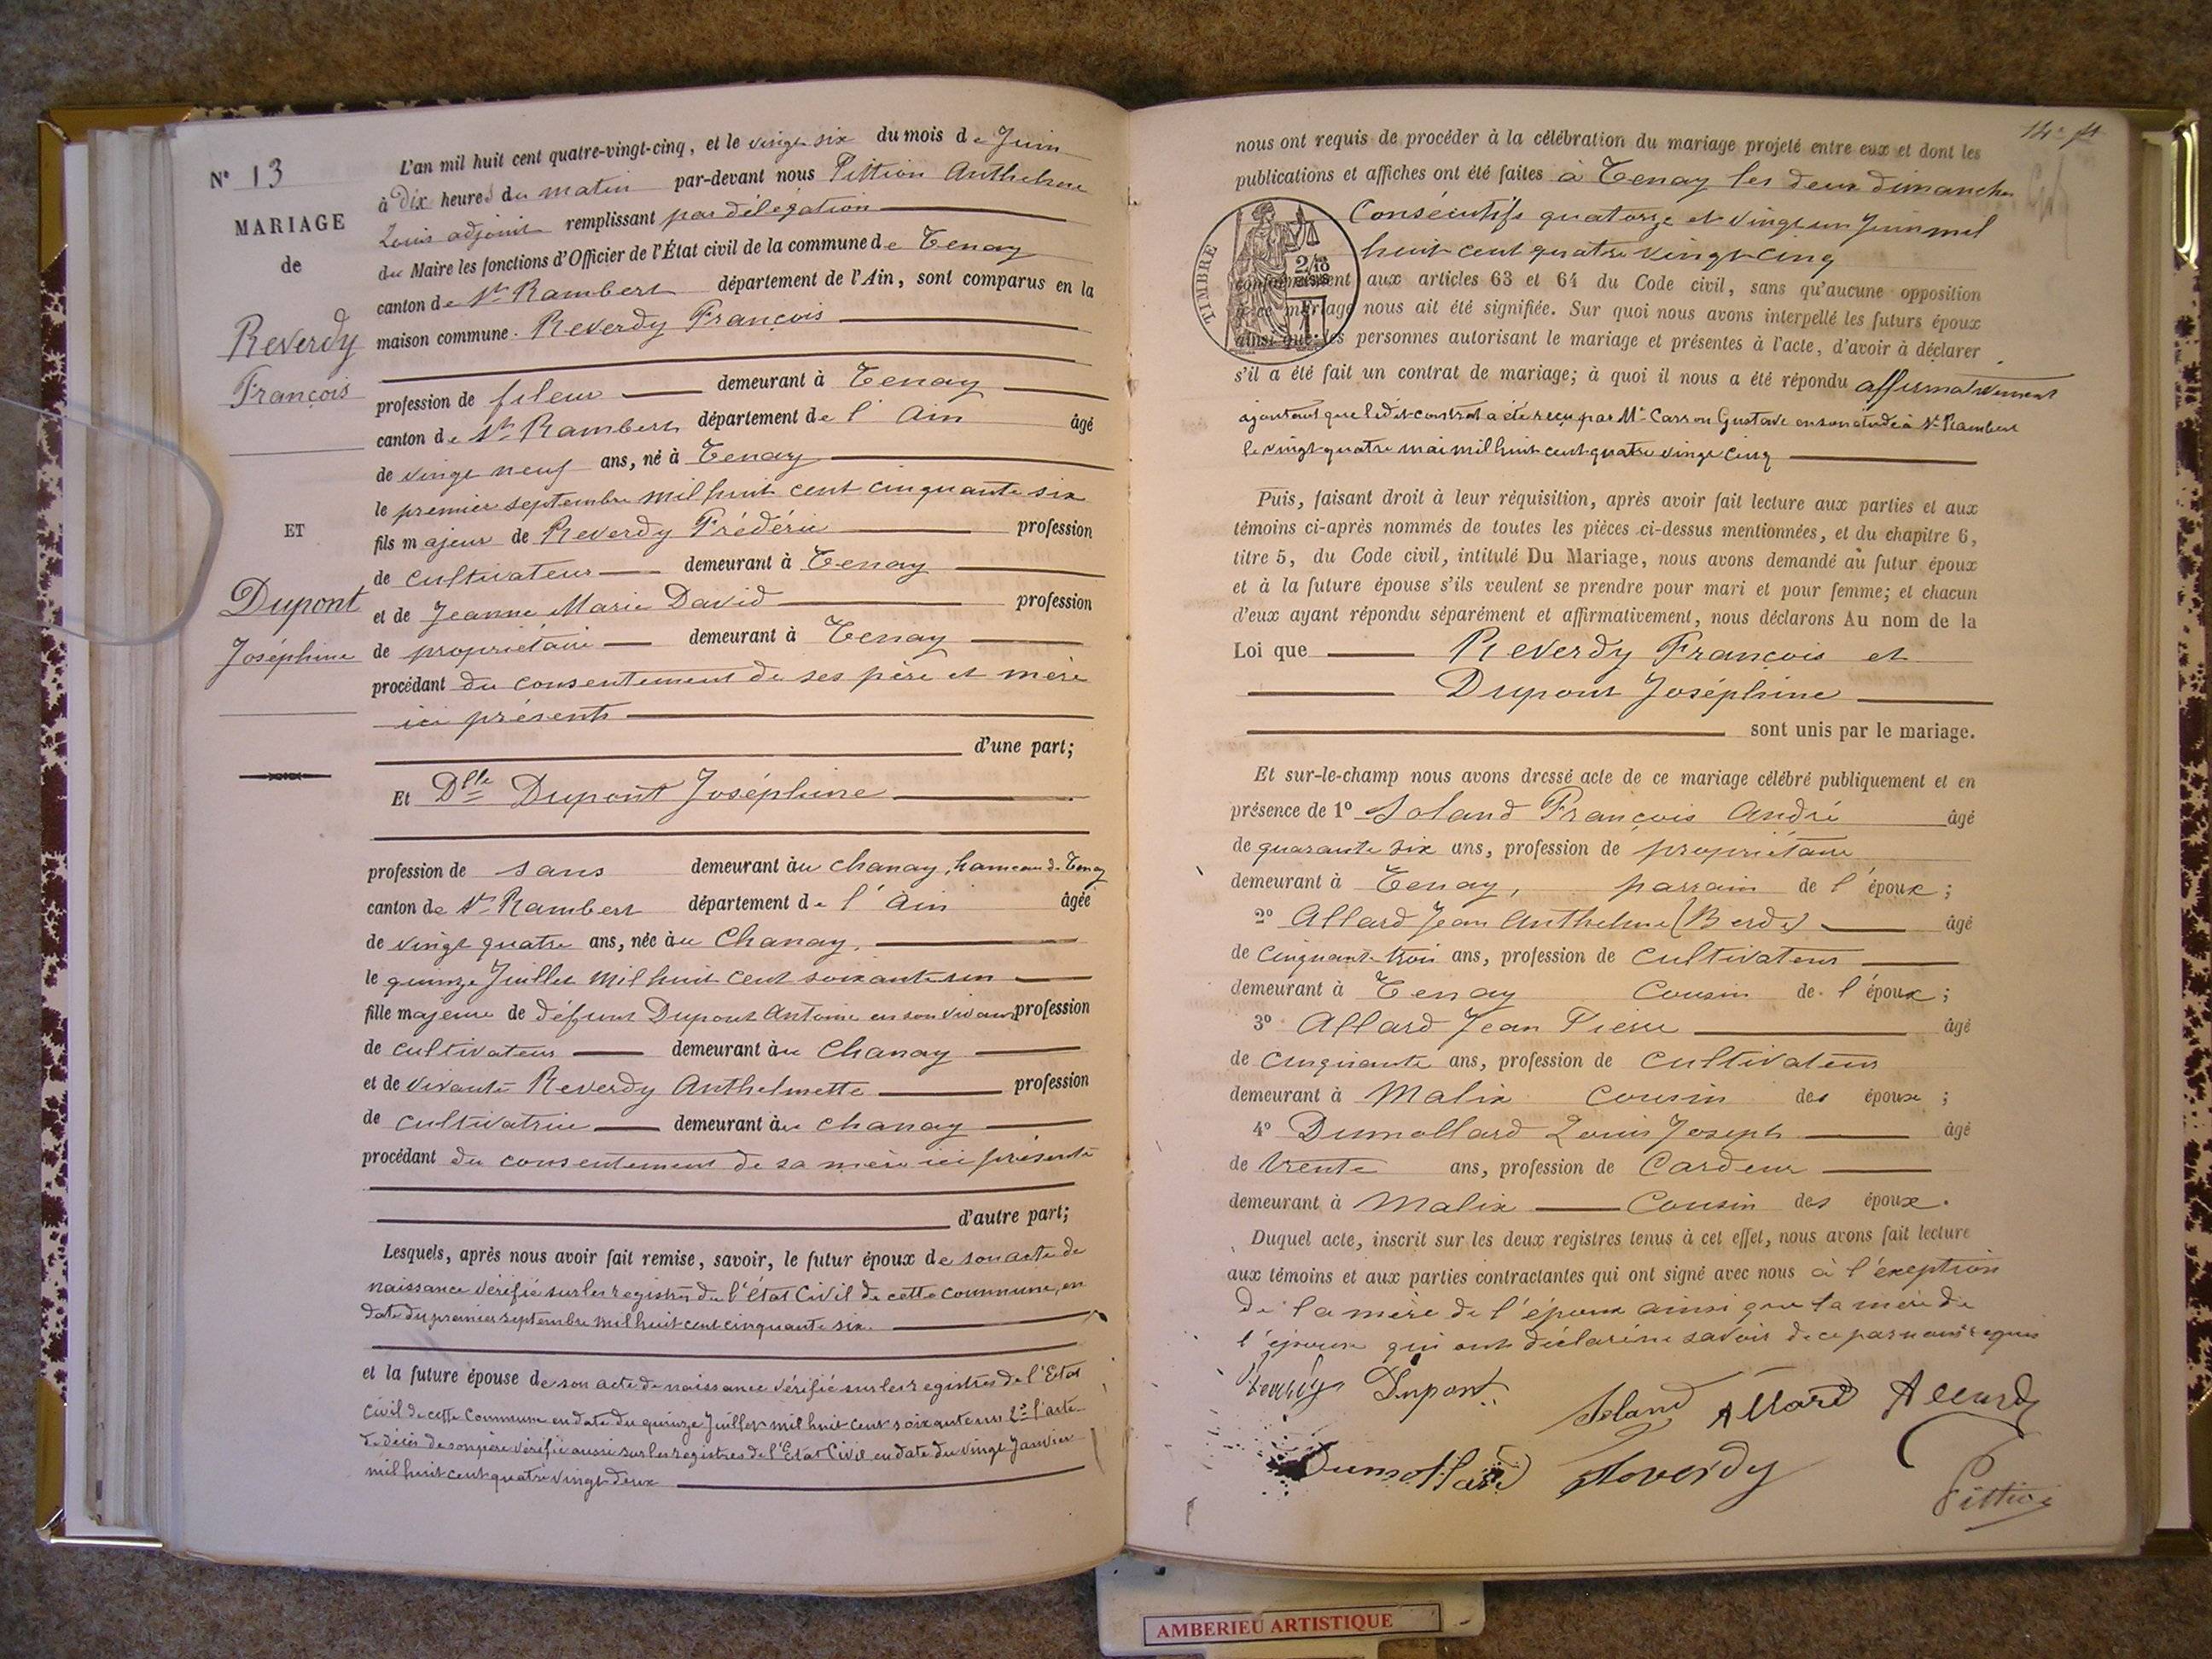 N° 13
MARIAGE
de
Reverdy
François
ET
Dupont
Joséphine
L'an mil huit cent quatre-vingt-cinq, et le vingt six du mois de Juin
à Dix heures du matin par-devant nous Pittion Anthelme
Louis adjoint remplissant par délégation
du Maire les fonctions d'Officier de l'État civil de la commune de Tenay
canton de St Rambert département de l'Ain, sont comparus en la
maison commune. Reverdy François
profession de fileur demeurant à Tenay
canton de St Rambert département de l' Ain âgé
de vingt neuf ans, né à Tenay
le premier septembre mil huit cent cinquante six
fils majeur de Reverdy Frédéric profession
de cultivateur demeurant à Tenay
et de Jeanne Marie David profession
de propriétaire demeurant à Tenay
procédant du consentement de ses père et mère
ici présents
d'une part;
Et Dlle Dupont Joséphine
profession de sans demeurant àu Chanay, hameau de Tenay
canton de St Rambert département de l' Ain âgée
de vingt quatre ans, née àu Chanay,
le quinze Juillet mil huit cent soixante un
fille majeure de défunt Dupont Antoine en son vivant profession
de cultivateur demeurant àu Chanay
et de vivante Reverdy Anthelmette profession
de cultivatrice demeurant àu Chanay
procédant du consentement de sa mère ici présente
d'autre part;
Lesquels, après nous avoir fait remise, savoir, le futur époux de son acte de
naissance vérifié sur les registres de l'État Civil de cette commune, en
date du premier septembre mil huit cent cinquante six.
et la future épouse de son acte de naissance vérifié sur les registres de l'Etat
Civil de cette Commune en date du quinze Juillet mil huit cent soixante un 2° l'acte
de décès de son père vérifié aussi sur les registres de l'Etat Civil en date du vingt Janvier
mil huit cent quatre vingt deux
nous ont requis de procéder à la célébration du mariage projeté entre eux et dont les
publications et affiches ont été faites à Tenay les deux dimanches
Consécutifs quatorze et vingt un Juin mil
huit cent quatre vingt cinq
TIMBRE
conformément aux articles 63 et 64 du Code civil, sans qu'aucune opposition
à ce mariage nous ait été signifiée. Sur quoi nous avons interpellé les futurs époux
ainsi que les personnes autorisant le mariage et présentes à l'acte, d'avoir à déclarer
s'il a été fait un contrat de mariage; à quoi il nous a été répondu affirmativement
ajoutant que ledit contrat a été reçu par Me Carron Gustave en son étude à St Rambert
le vingt quatre mai mil huit cent quatre vingt cinq
Puis, faisant droit à leur réquisition, après avoir fait lecture aux parties et aux
témoins ci-après nommés de toutes les pièces ci-dessus mentionnées, et du chapitre 6,
titre 5, du Code civil, intitulé Du Mariage, nous avons demandé au futur époux
et à la future épouse s'ils veulent se prendre pour mari et pour femme; et chacun
d'eux ayant répondu séparément et affirmativement, nous déclarons Au nom de la
Loi que Reverdy François et
Dupont Joséphine
sont unis par le mariage.
Et sur-le-champ nous avons dressé acte de ce mariage célébré publiquement et en
présence de 1° Soland François André âgé
de quarante six ans, profession de propriétaire
demeurant à Tenay, parrain de l' époux;
2° Allard Jean Anthelme (Berde) âgé
de Cinquante trois ans, profession de Cultivateur
demeurant à Tenay Cousin de l' époux;
3° Allard Jean Pierre âgé
de cinquante ans, profession de cultivateur
demeurant à Malix Cousin des époux;
4° Dumollard Louis Joseph âgé
de trente ans, profession de Cardeur
demeurant à Malix Cousin des époux.
Duquel acte, inscrit sur les deux registres tenus à cet effet, nous avons fait lecture
aux témoins et aux parties contractantes qui ont signé avec nous à l'exeption
de la mère de l'époux ainsi que la mère de
l'épouse qui ont déclaré ne savoir de ce par nous requis
Dupont Soland Allard Allard
Dumollard Reverdy
Pittion
AMBERIEU ARTISTIQUE